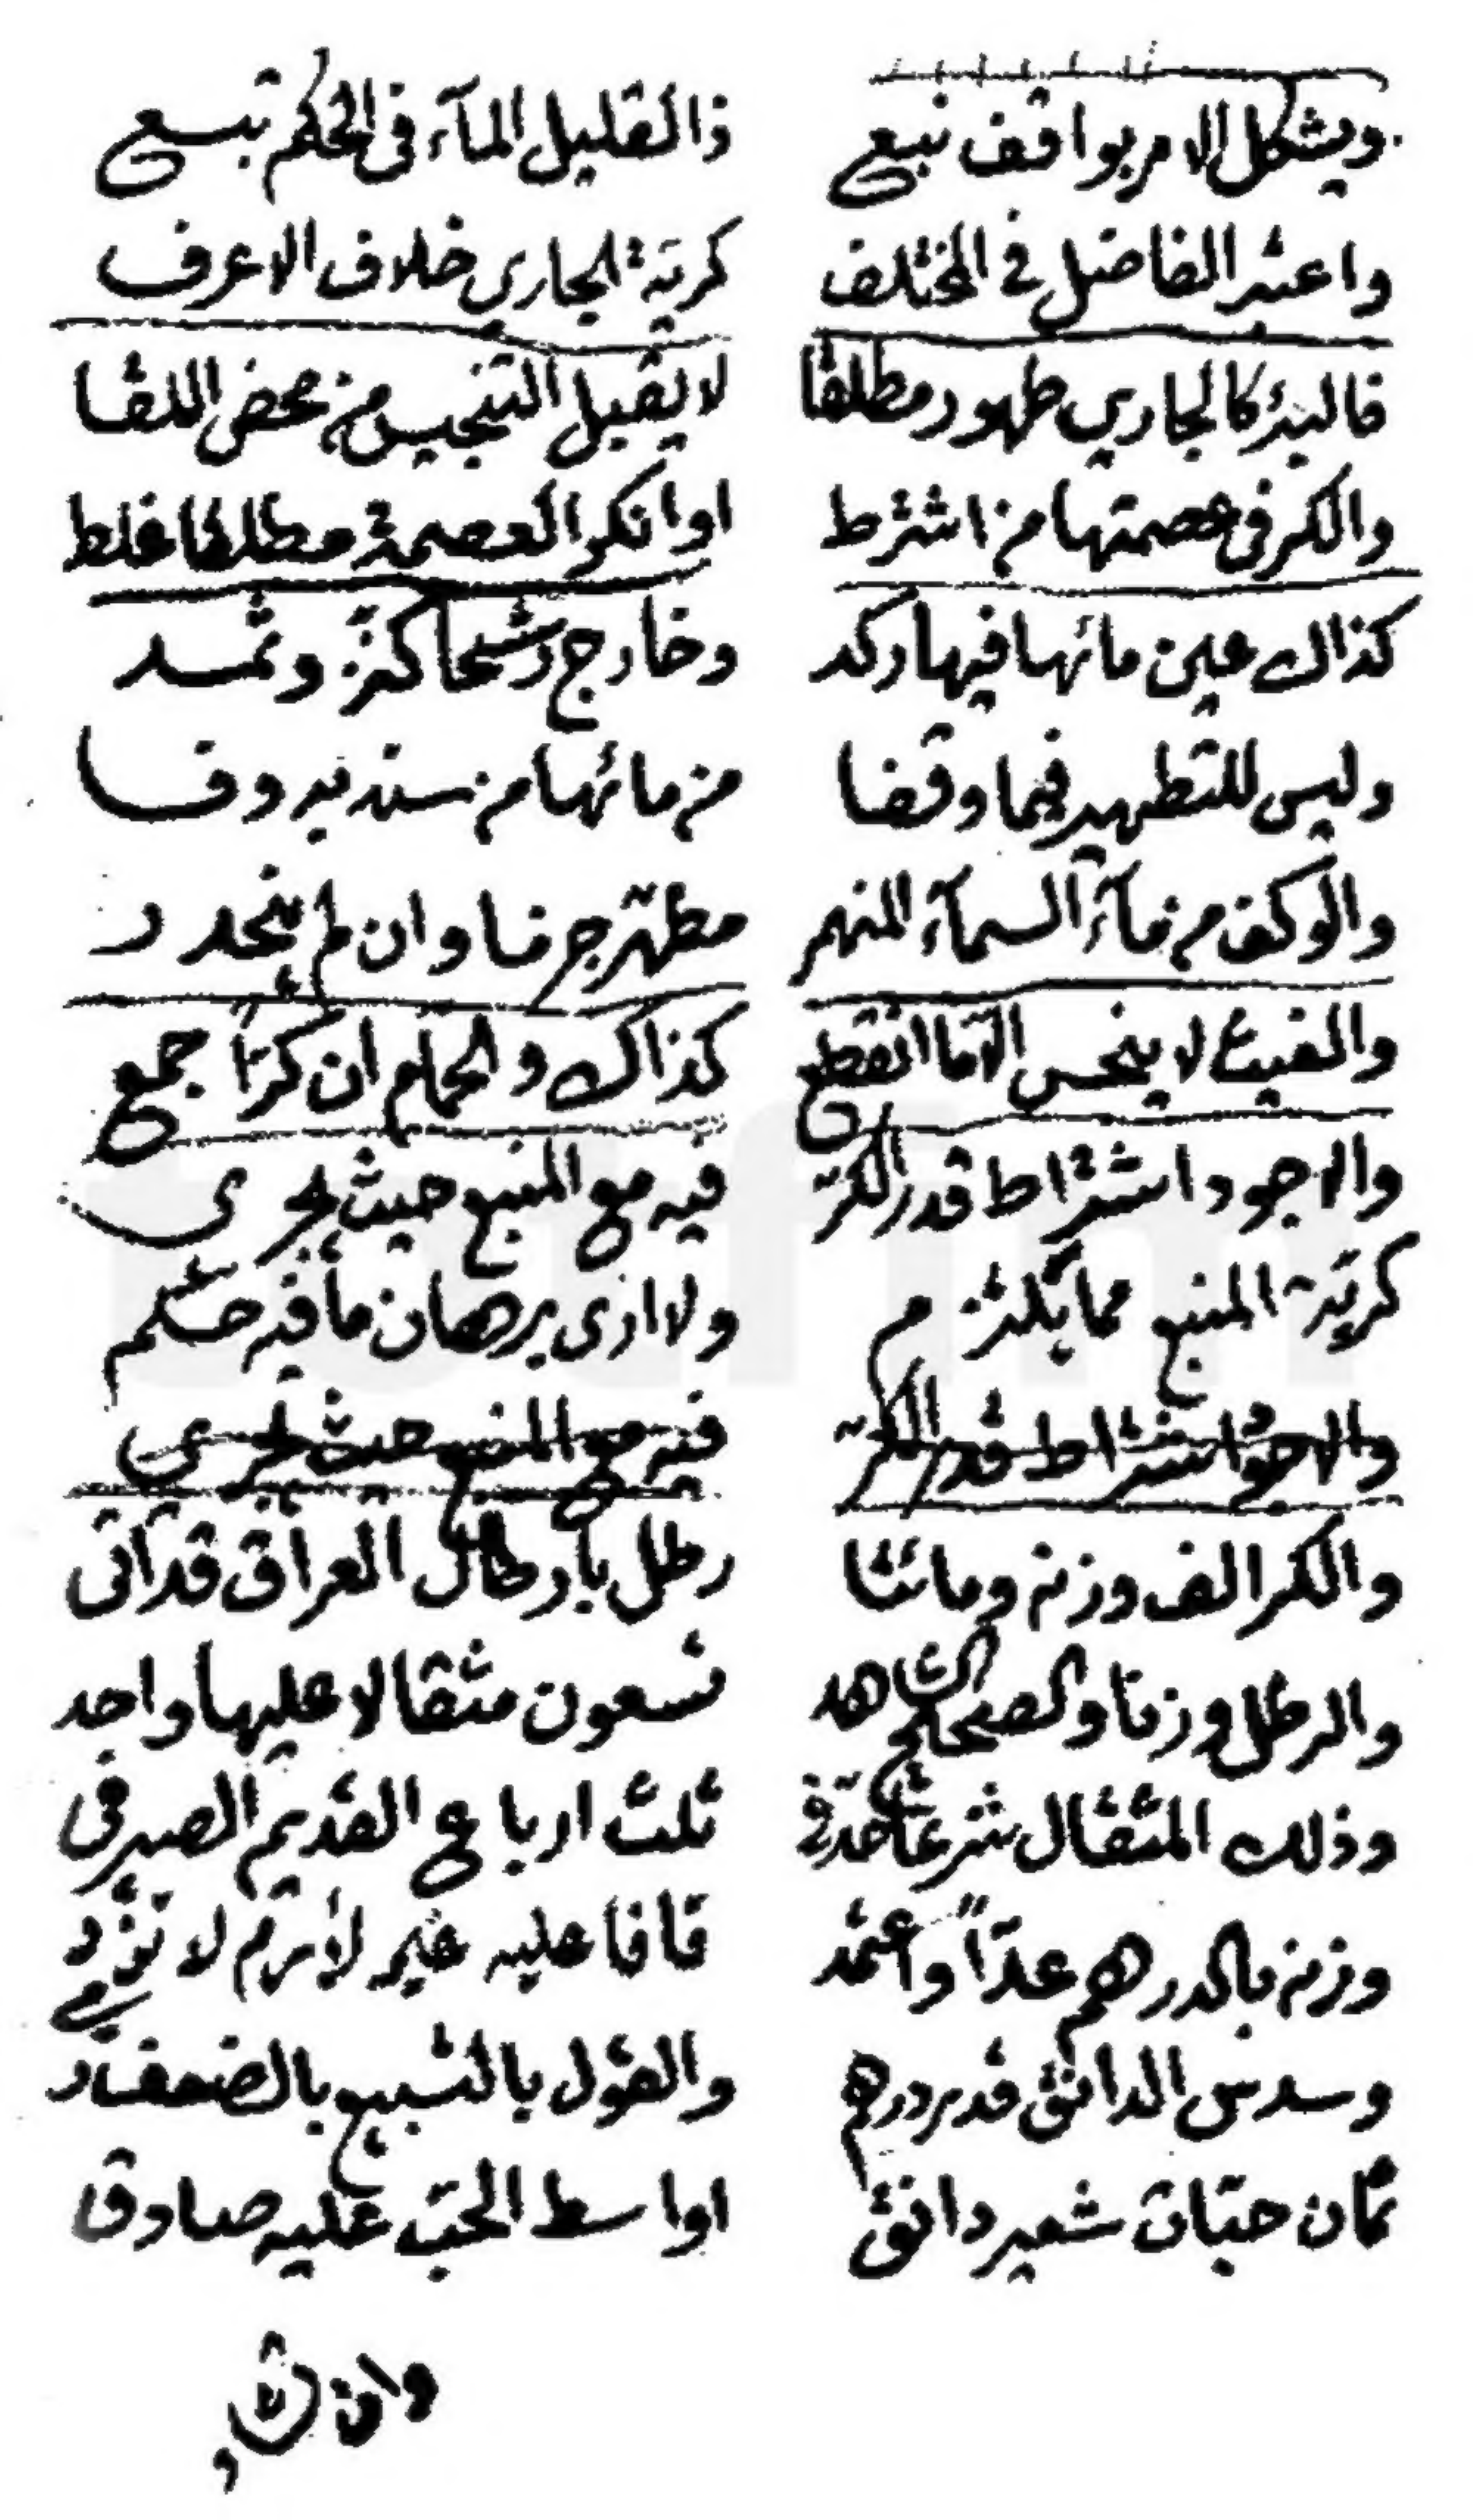 ويشكل الامر بواقف نبع ذا القليل المآء فى الحكم تبع
واعتبر الفاضل في المختلف كرية الجارى خلاف الاعرف
فالبئر كالجاري طهور مطلقا لا يقبل التنجيس من محض اللقا
والكر فى عصمتها من اشترط او انكر العصمة مطلقا غلط
كذاك عين مائها فيها ركد وخارج رشحا كنز وثمد
وليس للتطهير فيما وقفا من مائها من سند به وفا
والوكف من مآء السمآء المنهمر مطهر جرما وان لم ينحدر
والغيث لا ينجس الا ما انقطع كذاك والحمام ان كرا جمع
والاجود اشتراط قدر الكر فيه مع المنبع حيث يجرى
كرية المنبع مما يلتزم ولا ارى برهان ما فيه حكم
والاحوط اشتراط قدر الكر فيه مع المنبع حيث يجرى
والكر الف وزنه ومائتا رطل بارطال العراق قد اتى
والرطل وزنا والصحاح شاهد تسعون مثقالا عليها واحد
وذلك المثقال شرعا حد في ثلث ارباع القديم الصيرفى
وزنه بالدرهم عدا واعتمد قافا عليه غير لازم لا تؤد
وسدس الدانق قدر درهم والقول بالتسبيع بالضعف
ثمان حبات شعير دانق اواسط الحب عليه صادق
وان